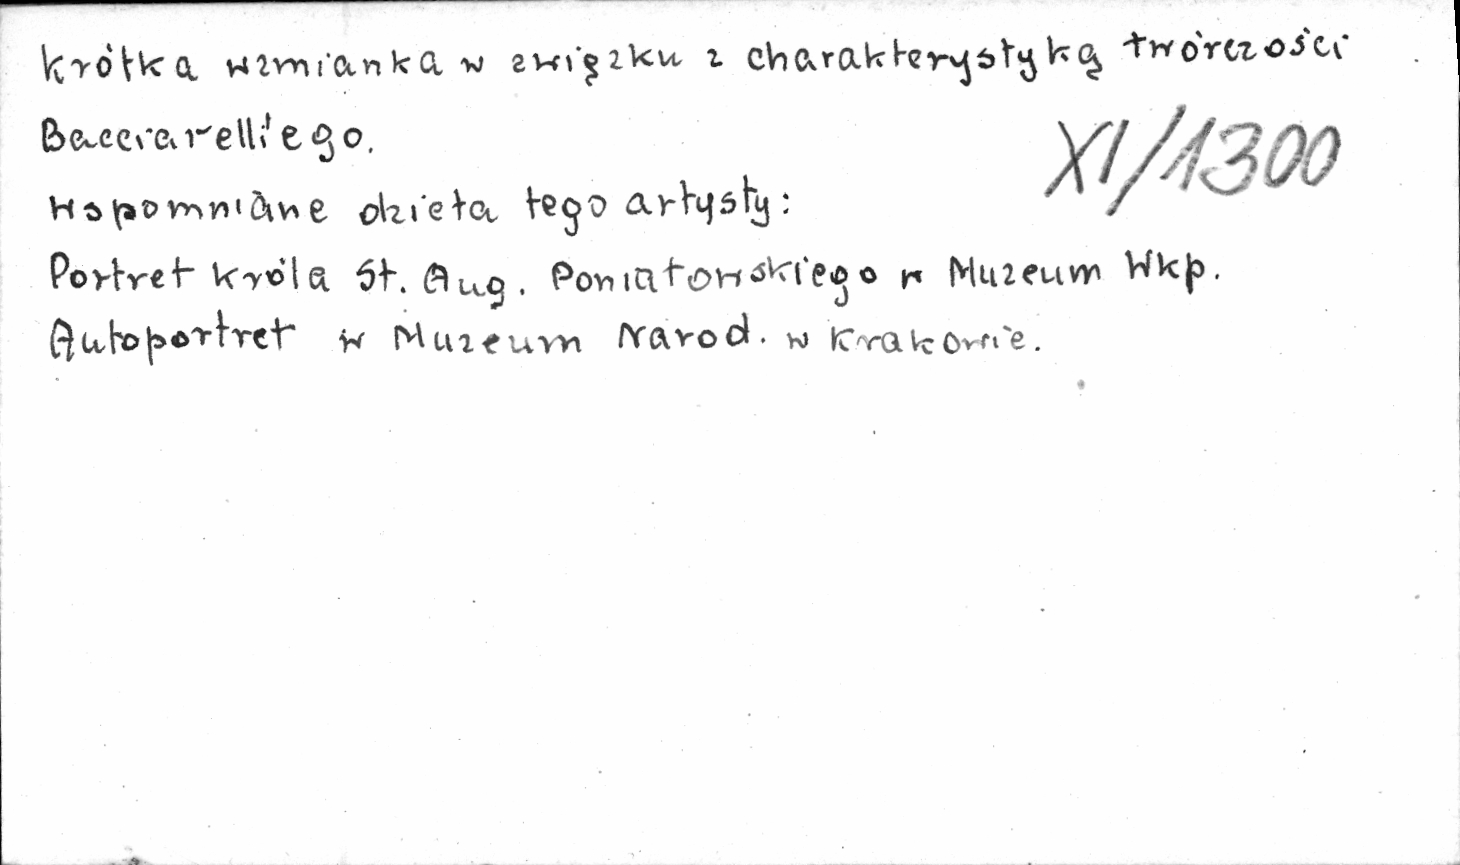 krótka wzmianka w związku z charakterystyką twórczości
Bacciarelli'ego.
XI/1300
Wspomniane dzieła tego artysty:
Portret króla St. Aug. Poniatowskiego w Muzeum Wkp.
Autoportret w Muzeum Narod. w Krakowie.